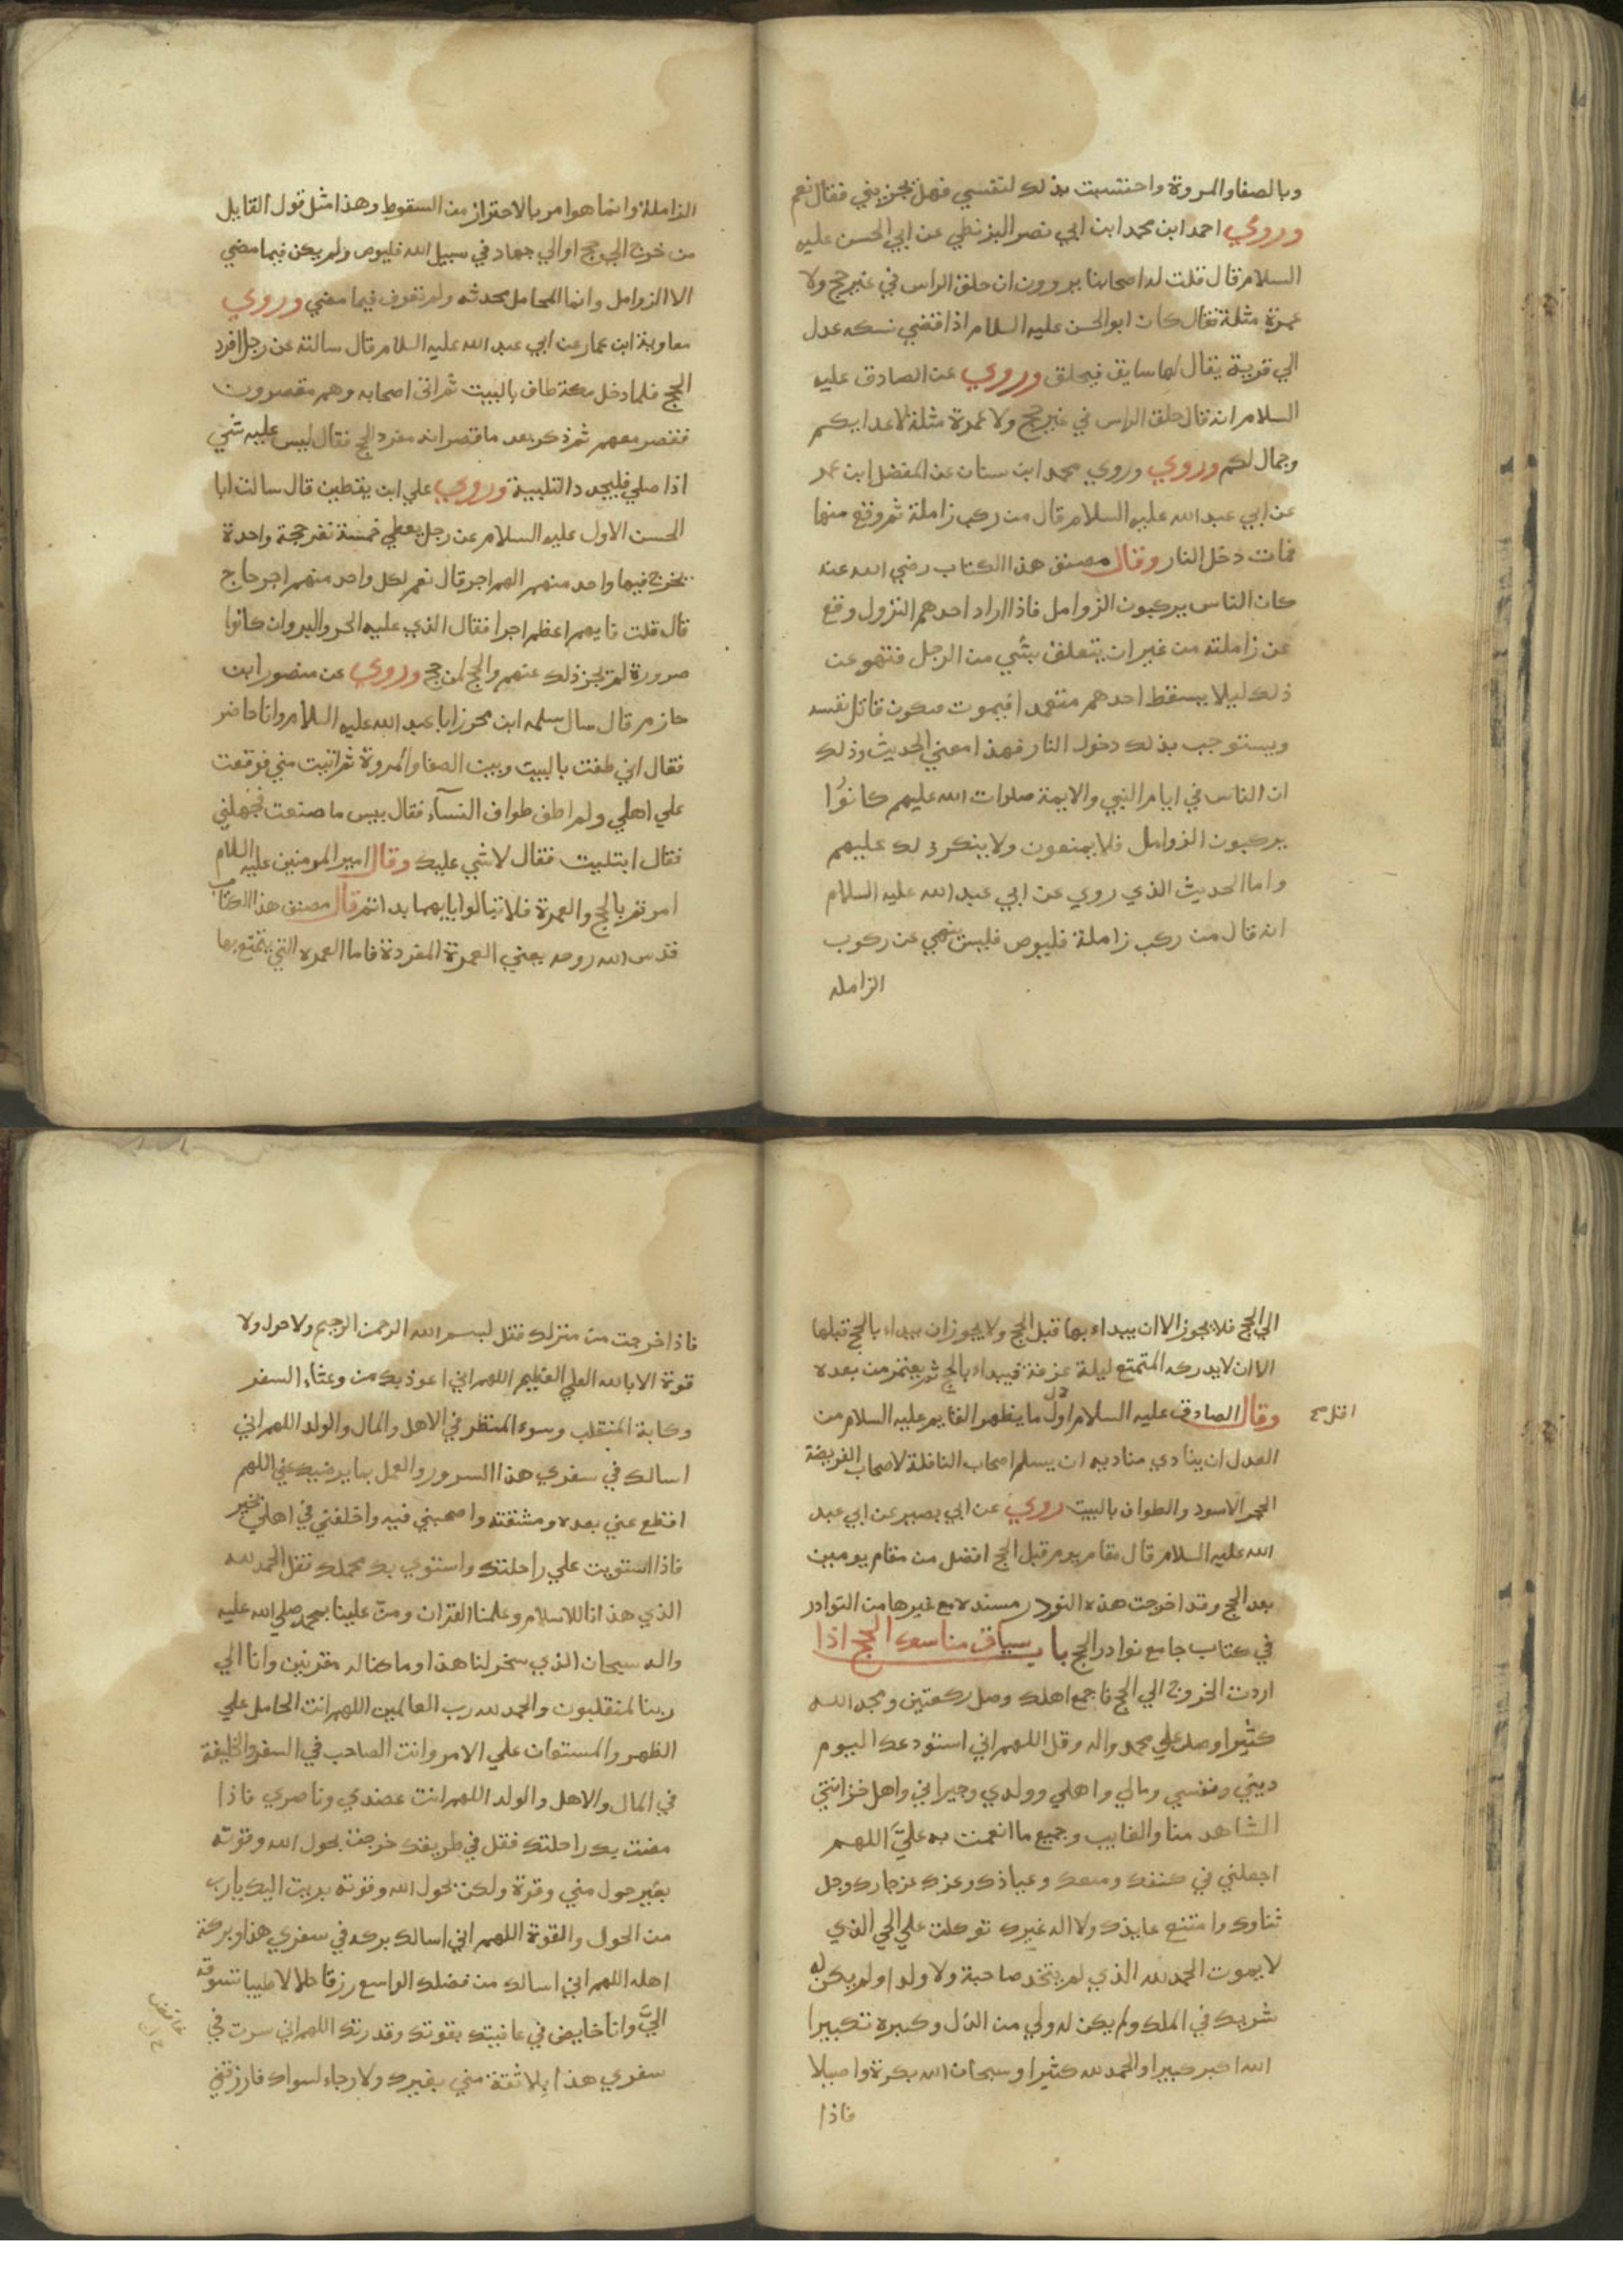 وبالصفا والمروة واحتسبت بذلك لنفسي فهل يجزيني فقال نعم
وروي احمد ابن محمد ابن ابي نصر البزنطي عن ابي الحسن عليه
السلام قال قلت له اصحابنا يروون ان حلق الراس في غير حج ولا
عمرة مثلة فقال كان ابو الحسن عليه السلام اذا قضي نسكه عدل
الي قرية يقال لها سايق فيحلق وروي عن الصادق عليه
السلام انه قال حلق الراس في غير حج ولا عمرة مثلة لاعدايكم
وجمال لكم وروي وروي محمد ابن سنان عن المفضل ابن عمر
عن ابي عبد الله عليه السلام قال من ركب زاملة ثم وقع منها
فمات دخل النار وقال مصنف هذا الكتاب رضي الله عنه
كان الناس يركبون الزوامل فاذا اراد احدهم النزول وقع
عن زاملته من غير ان يتعلق بشي من الرحل فنهو عن
ذلك ليلا يسقط احدهم متعمدا فيموت فيكون قاتل نفسه
ويستوجب بذلك دخول النار فهذا معني الحديث وذلك
ان الناس في ايام النبي والايمة صلوات الله عليهم كانوا
يركبون الزوامل فلا يمنعون ولا ينكر ذلك عليهم
واما الحديث الذي روي عن ابي عبد الله عليه السلام
انه قال من ركب زاملة فليوص فليس ينهي عن ركوب
الزامله
الزاملة وانما هو امر بالاحتراز من السقوط وهذا مثل قول القايل
من خرج الي حج او الي جهاد في سبيل الله فليوص ولم يكن فيما مضي
الا الزوامل وانما المحامل محدثه ولم تعرف فيما مضي وروي
معاوية ابن عمار عن ابي عبد الله عليه السلام قال سالته عن رجل افرد
الحج فلما دخل مكة طاف بالبيت ثم اتي اصحابه وهم مقصرون
فقصر معهم ثم ذكر بعد ما قصر انه مفرد الحج فقال ليس عليه شي
اذا صلي فليجدد التلبية وروي علي ابن يقطين قال سالت ابا
الحسن الاول عليه السلام عن رجل يعطي خمسة نفر حجة واحدة
يخرج فيها واحد منهم الهم اجر قال نعم لكل واحد منهم اجر حاج
قال قلت فايهم اعظم اجرا فقال الذي عليه الحر والبرد وان كانوا
صرورة لم تجز ذلك عنهم والحج لمن حج وروي عن منصور ابن
حازم قال سال سلمه ابن محرز ابا عبد الله عليه السلام وانا حاضر
فقال اني طفت بالبيت وبين الصفا والمروة ثم اتيت مني فوقعت
علي اهلي ولم اطف طواف النسآء فقال بيس ما صنعت فجهلني
فقال ابتليت فقال لا شي عليك وقال امير المومنين عليه السلام
امرتم بالحج والعمرة فلا تبالوا بايهما بداتم قال مصنف هذا الكتاب
قدس الله روحه يعني العمرة المفردة فاما العمره التي يتمتع بها
الي الحج فلا يجوز الا ان يبداء بها قبل الحج ولا يجوز ان يبداء بالحج قبلها
الا ان لا يدركه المتمتع ليلة عرفة فيبداء بالحج ثم يعتمر من بعده
وقال الصادق عليه السلام اول ما يظهر القايم عليه السلام من
العدل ان ينادي مناديه ان يسلم اصحاب النافلة لاصحاب الفريضة
الحجر الاسود والطواف بالبيت روي عن ابي بصير عن ابي عبد
الله عليه السلام قال مقام يوم قبل الحج افضل من مقام يومين
بعد الحج وقد اخرجت هذه النودر مسنده مع غيرها من النوادر
في كتاب جامع نوادر الحج باب سياق مناسك الحج اذا
اردت الخروج الي الحج فاجمع اهلك وصل ركعتين ومجد الله
كثيرا وصل علي محمد واله وقل اللهم اني استودعك اليوم
ديني ونفسي ومالي واهلي وولدي وجيراني واهل خزانتي
الشاهد منا والغايب وجميع ما انعمت به عليَّ اللهم
اجعلني في كنفك ومنعك وعياذك وعزك عز جارك وجل
ثناوك وامتنع عايذك ولا اله غيرك توكلت علي الحي الذي
لا يموت الحمد لله الذي لم يتخذ صاحبة ولا ولدا ولم يكن له
شريك في الملك ولم يكن له ولي من الذل وكبره تكبيرا
الله اكبر كبيرا والحمد لله كثيرا وسبحان الله بكرة واصيلا
فاذا
فاذا خرجت من منزلك فقل بسم الله الرحمن الرحيم ولا حول ولا
قوة الا بالله العلي العظيم اللهم اني اعوذ بك من وعثاء السفر
وكابة المنقلب وسوء المنظر في الاهل والمال والولد اللهم اني
اسالك في سفري هذا السرور والعمل بما يرضيك عني اللهم
اقطع عني بعده ومشقته واصحبني فيه واخلفني في اهلي بخير
فاذا استويت علي راحلتك واستوي بك محملك فقل الحمد لله
الذي هدانا للاسلام وعلمنا القران ومن علينا بمحمد صلي الله عليه
واله سبحان الذي سخر لنا هذا وما كنا له مقرنين وانا الي
ربنا لمنقلبون والحمد لله رب العالمين اللهم انت الحامل علي
الظهر والمستعان علي الامر وانت الصاحب في السفر والخليفة
في المال والاهل والولد اللهم انت عضدي وناصري فاذا
مضت بك راحلتك فقل في طريقك خرجت بحول الله وقوته
بغير حول مني وقوة ولكن بحول الله وقوته بريت اليك يارب
من الحول والقوة اللهم اني اسالك بركه في سفري هذا وبركة
اهله اللهم اني اسالك من فضلك الواسع رزقا حلالا طيبا تسوقه
اليَّ وانا خايض في عافيتك بقوتك وقدرتك اللهم اني سرت في
سفري هذا بلا ثقة مني بغيرك ولا رجاء لسواك فارزقني